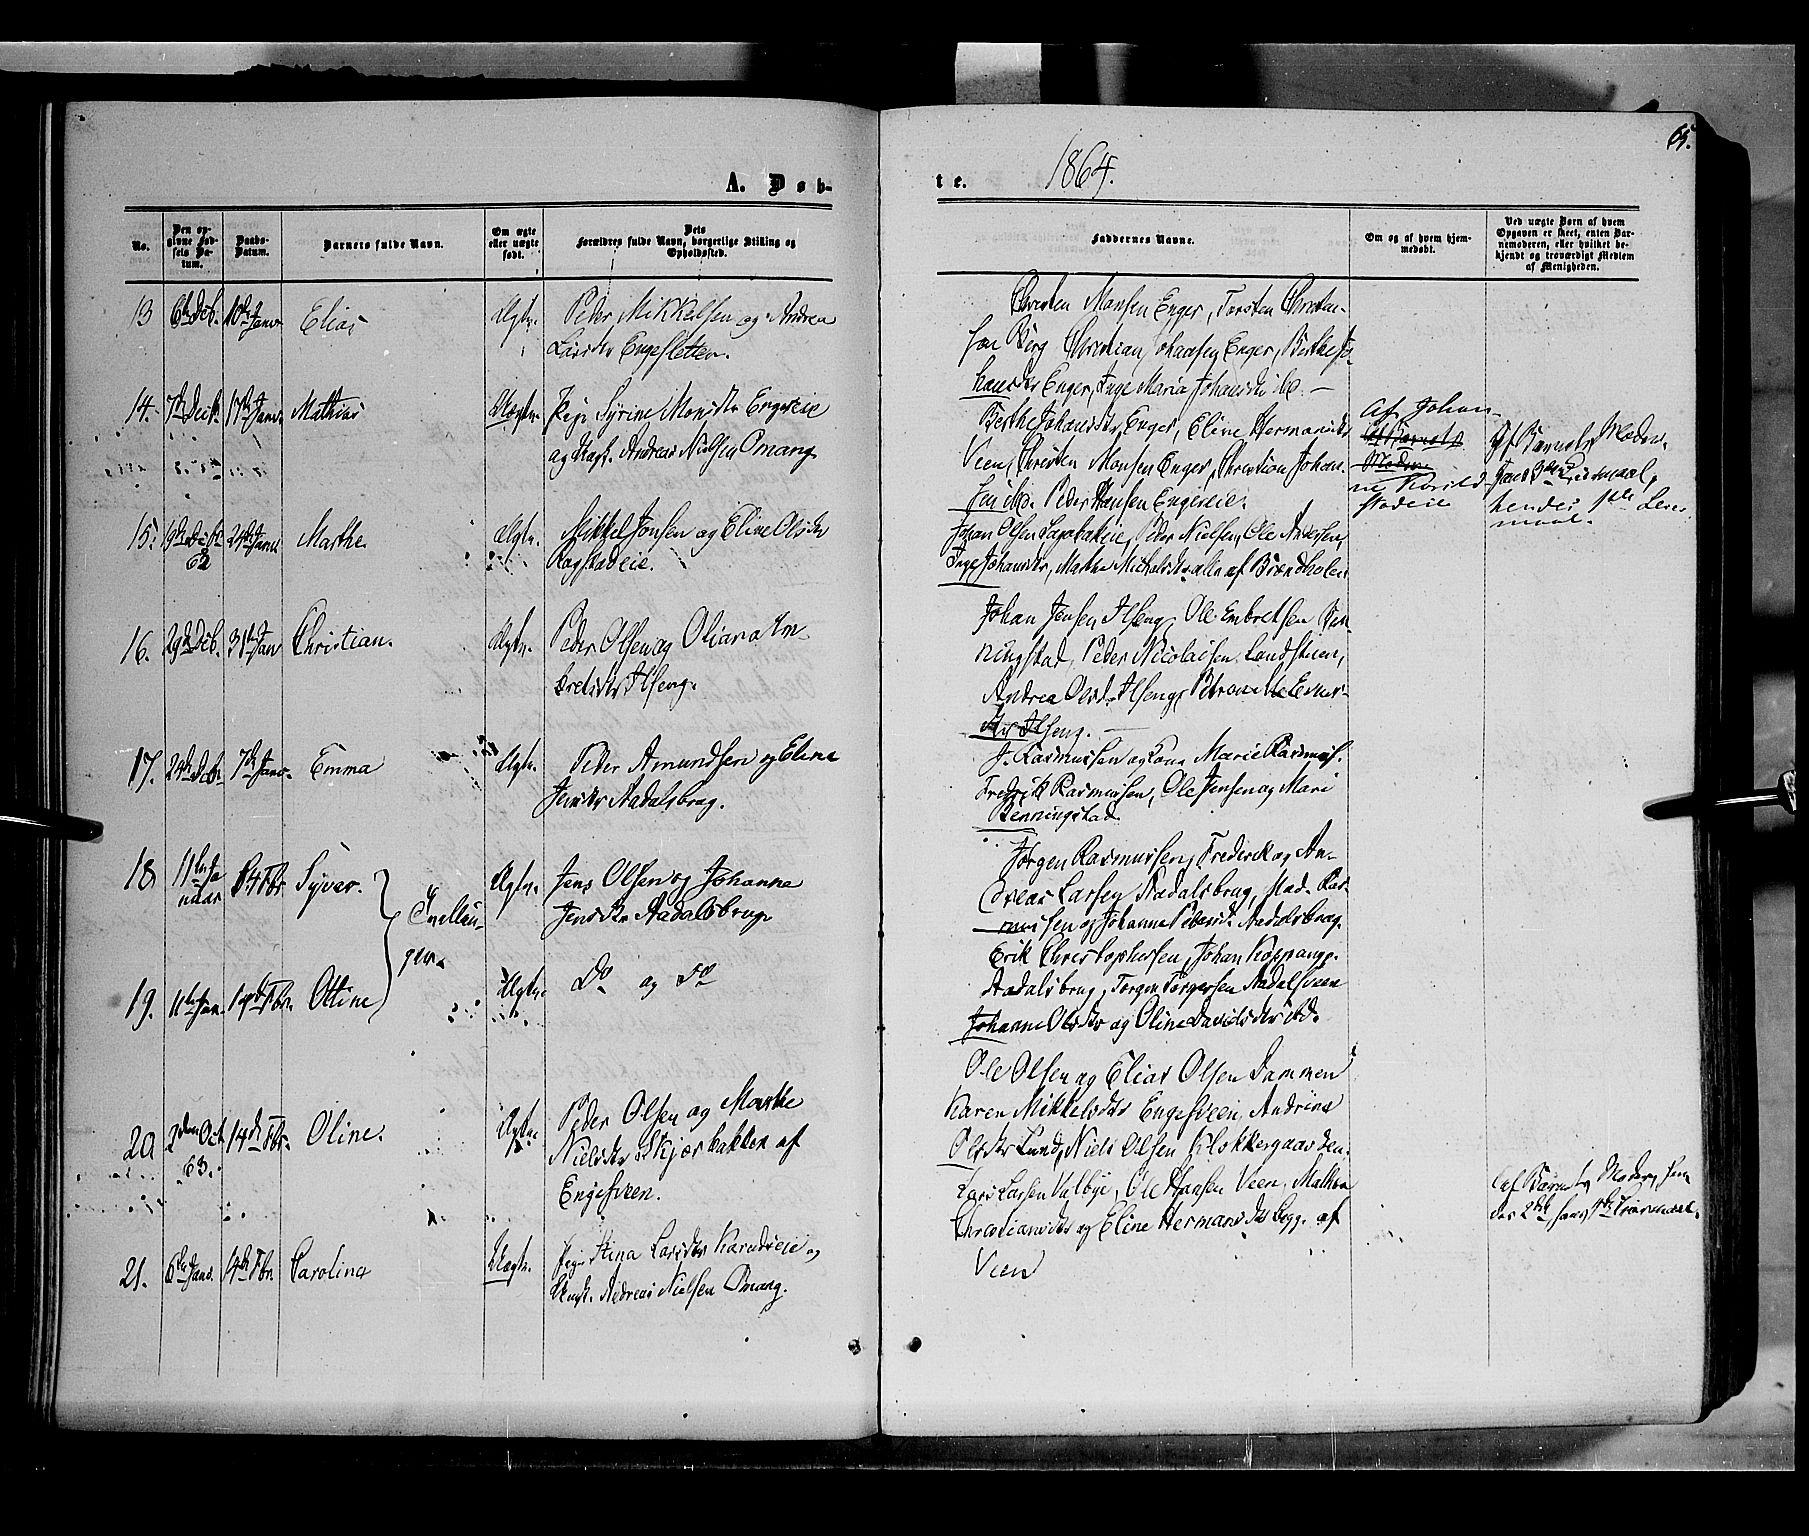 65.
A. Døb-
te.
1864.
No.
Den op-
givne Fød-
sels Da-
tum.
Daabs-
Datum.
Barnets fulde Navn.
Om ægte
eller uægte
født.
Dets
Forældres fulde Navn, borgerlige Stilling og
Opholdssted.
Faddernes Navne.
Om og af hvem hjem-
medøbt.
Ved uægte Børn af hvem
Opgaven er skeet, enten Bar-
nemoderen, eller hvilket be-
kjendt og troværdigt Medlem
af Menigheden.
13
6te Deb.
10de Janv
Elias
Ægte.
Peder Mikkelsen og Andrea
Larsdtr Engesletten.
Christen Monsen Enger, Torsten Christen-
sen Berg Christian Johansen Enger, Berthe Jo-
hansdtr Enger, Inge Maria Johansdtr ibd. —
14.
7de Decb.
17de Janv.
Mathias
Uægte.
Pige Syrine Monsdtr Engereie
og Ungk. Andreas Nielsen Omang
Berthe Johansdtr Enger, Eline Hermansdtr
Veen, Christen Monsen Enger, Christian Johan-
sen ibd. Peder Hansen Engereie.
Af Johan-
Af Barnets
Moder
Af Barnets Moder.
hans 3die Leiermaal,
hendes 1ste Leier-
maal.
15.
19de Debr
62
24de Janv
Marthe
Ægte.
Mikkel Jonsen og Eline Olsdtr
Ragstadeie.
Johan Olsen Peder Nielsen, Ole Andersen,
Inge Johansdtr, Marthe Michelsdtr alle af Brændholen
16.
29de Deb.
31te Jan
Christian.
Ægte.
Peder Olsen og Oliana Em-
bretsdtr Ilseng.
Johan Jensen Ilseng, Ole Embretsen Ben-
ningstad, Peder Nicolaisen Landstuen,
Andrea Olsdtr Ilseng, Petronelle Einer-
dtr Ilseng. —
17.
24de Deb
7de Janv.
Emma
Ægte.
Peder Amundsen og Eline
Jensdtr Aadalsbrug.
J. Rasmussen og Kone Marie Rasmus.
Fredrik Rasmussen, Ole Jensen og Mari
Benningstad
18
11te Ja
nuar
14 Fbr
Syver.
Tvillin-
ger.
Ægte.
Jens Olsen og Johanne
Jensdtr Aadalsbrug
Jørgen Rasmussen, Frederik og An-
dreas Larsen Aadalsbrug, Mad. Ras-
mussen og Johanne Pedersdt. Aadalsbrug.
19.
11te Jan.
14de Fbr.
Ottine
Ægte.
Do og Do
Erik Christophersen, Johan Koppang
Aadalsbrug, Torger Torgersen Aadalsveen
Johanne Olsdtr og Oline Davidsdtr ibd.
20
2den Oct
63.
14de Fbr.
Oline.
Ægte
Peder Olsen og Marthe
Nielsdtr Skjærbakken af
Engesveen.
Ole Olsen og Elias Olsen Dammen
Karen Mikkelsdtr Engesveen, Andrine
Olsdtr Lund, Niels Olsen Klokkergaarden.
21.
6te Janv.
14de Fbr.
Carolina
Uægte.
Pige Stina Larsdtr og
Ungk. Andreas Nielsen Omang.
Lars Larsen Valbye, Ole Hansen Veen, Mathea
Christiansdtr og Eline Hermansdtr begg. af
Veen
Af Barnets Moder, hen-
des 2det hans 4de Leiermaal.